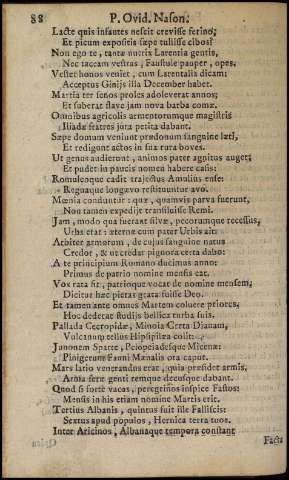 88 P. Ovid. Nason.
Lacte quis infantes nescit crevisse ferino;
Et picum expositis sæpe tulisse cibos?
Non ego te, tantæ nutrix Larentia gentis,
Nec taceam vestras, Faustule pauper, opes.
Vester honos veniet, cum Larentalia dicam:
Acceptus Genijs illa December habet.
Martia ter senos proles adoleverat annos;
Et suberat flavæ jam nova barba comæ.
Omnibus agricolis armentorumque magistris
Iliadæ fratres jura petita dabant.
Sæpe domum veniunt prædonum sanguine læti,
Et redigunt actos in sua rura boves.
Ut genus audierunt, animos pater agnitus auget;
Et pudet in paucis nomen habere casis:
Romuleoque cadit trajectus Amulius ense:
Regnaque longævo restituuntur avo.
Mœnia conduntur: quæ, quamvis parva fuerunt,
Non tamen expedijt transiluisse Remi.
Jam, modo qua fuerant silvæ, pecorumque recessus,
Urbs erat: æternæ cum pater Urbis ait:
Arbiter armorum, de cujus sanguine natus
Credor, & ut credar pignora certa dabo:
A te principium Romano ducimus anno:
Primus de patrio nomine mensis eat.
Vox rata fit, patrioque vocat de nomine mensem,
Dicitur hæc pietas grata fuisse Deo.
Et tamen ante omnes Martem coluere priores,
Hoc dederat studijs bellica turba suis.
Pallada Cecropidæ, Minoia Creta Dianam,
Vulcanum tellus Hipsipilæa colit:
Junonem Sparte, Pelopeiadesque Micenæ:
Pinigerum Fauni Mænalis ora caput.
Mars latio venerandus erat, quia præsidet armis,
Arma feræ genti remque decusque dabant.
Quod si forte vacas, peregrinos inspice Fastos:
Mensis in his etiam nomine Martis erit.
Tertius Albanis, quintus fuit ille Faliscis:
Sextus apud populos, Hernica terra tuos.
Inter Aricinos, Albanaque tempora constant
Facta